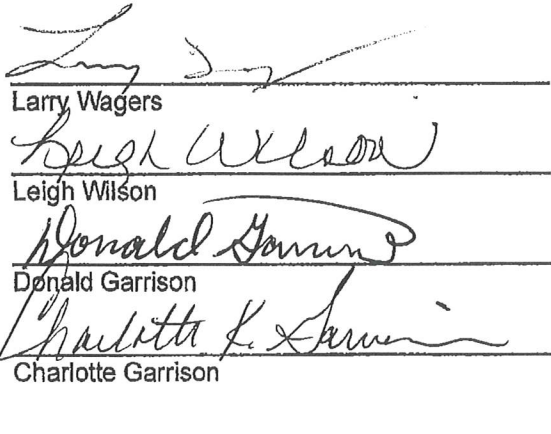 Larry
Larry Wagers
Leigh Wilson
Leigh Wilson
Donald Garrison
Donald Garrison
Charlotte K. Garrison
Charlotte Garrison